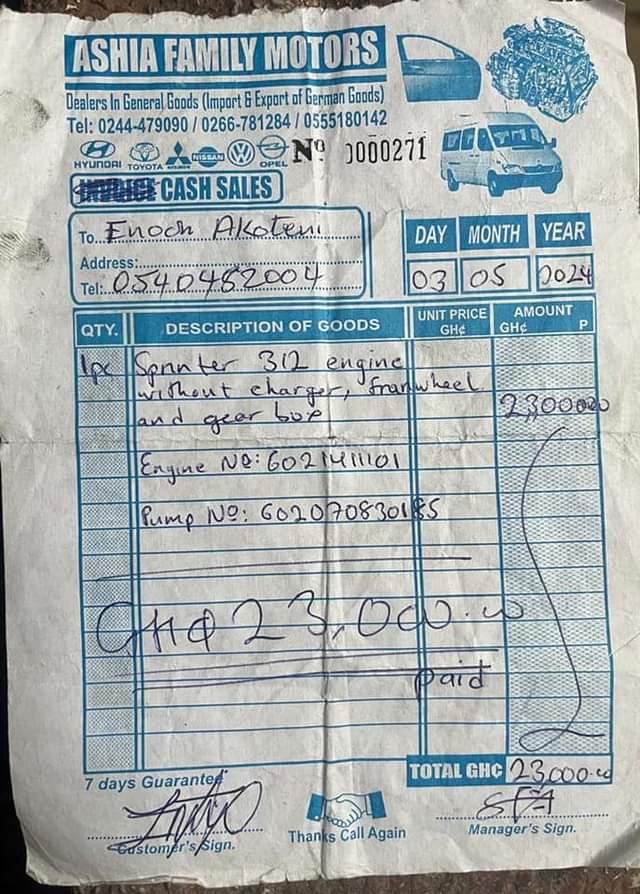 ASHIA FAMILY MOTORS
Dealers In General Goods (Import & Export of German Goods)
Tel: 0244-479090 / 0266-781284 / 0555180142
HYUNDAI TOYOTA NISSAN OPEL Nº 0000271
INVOICE CASH SALES
To.. Enoch Akoteni
Address:
Tel:.. 0540482004
DAY MONTH YEAR
03 05 2024
QTY. DESCRIPTION OF GOODS UNIT PRICE GH¢ AMOUNT GH¢ P
1pc Sprinter 312 engine
without charger, franwheel
and gear box 23,000.00
Engine Nº: 6021411101
Pump Nº: 602070830185
GH¢ 23,000.00
paid
TOTAL GH¢ 23,000.00
7 days Guarantee
Customer's Sign.
Thanks Call Again
Manager's Sign.